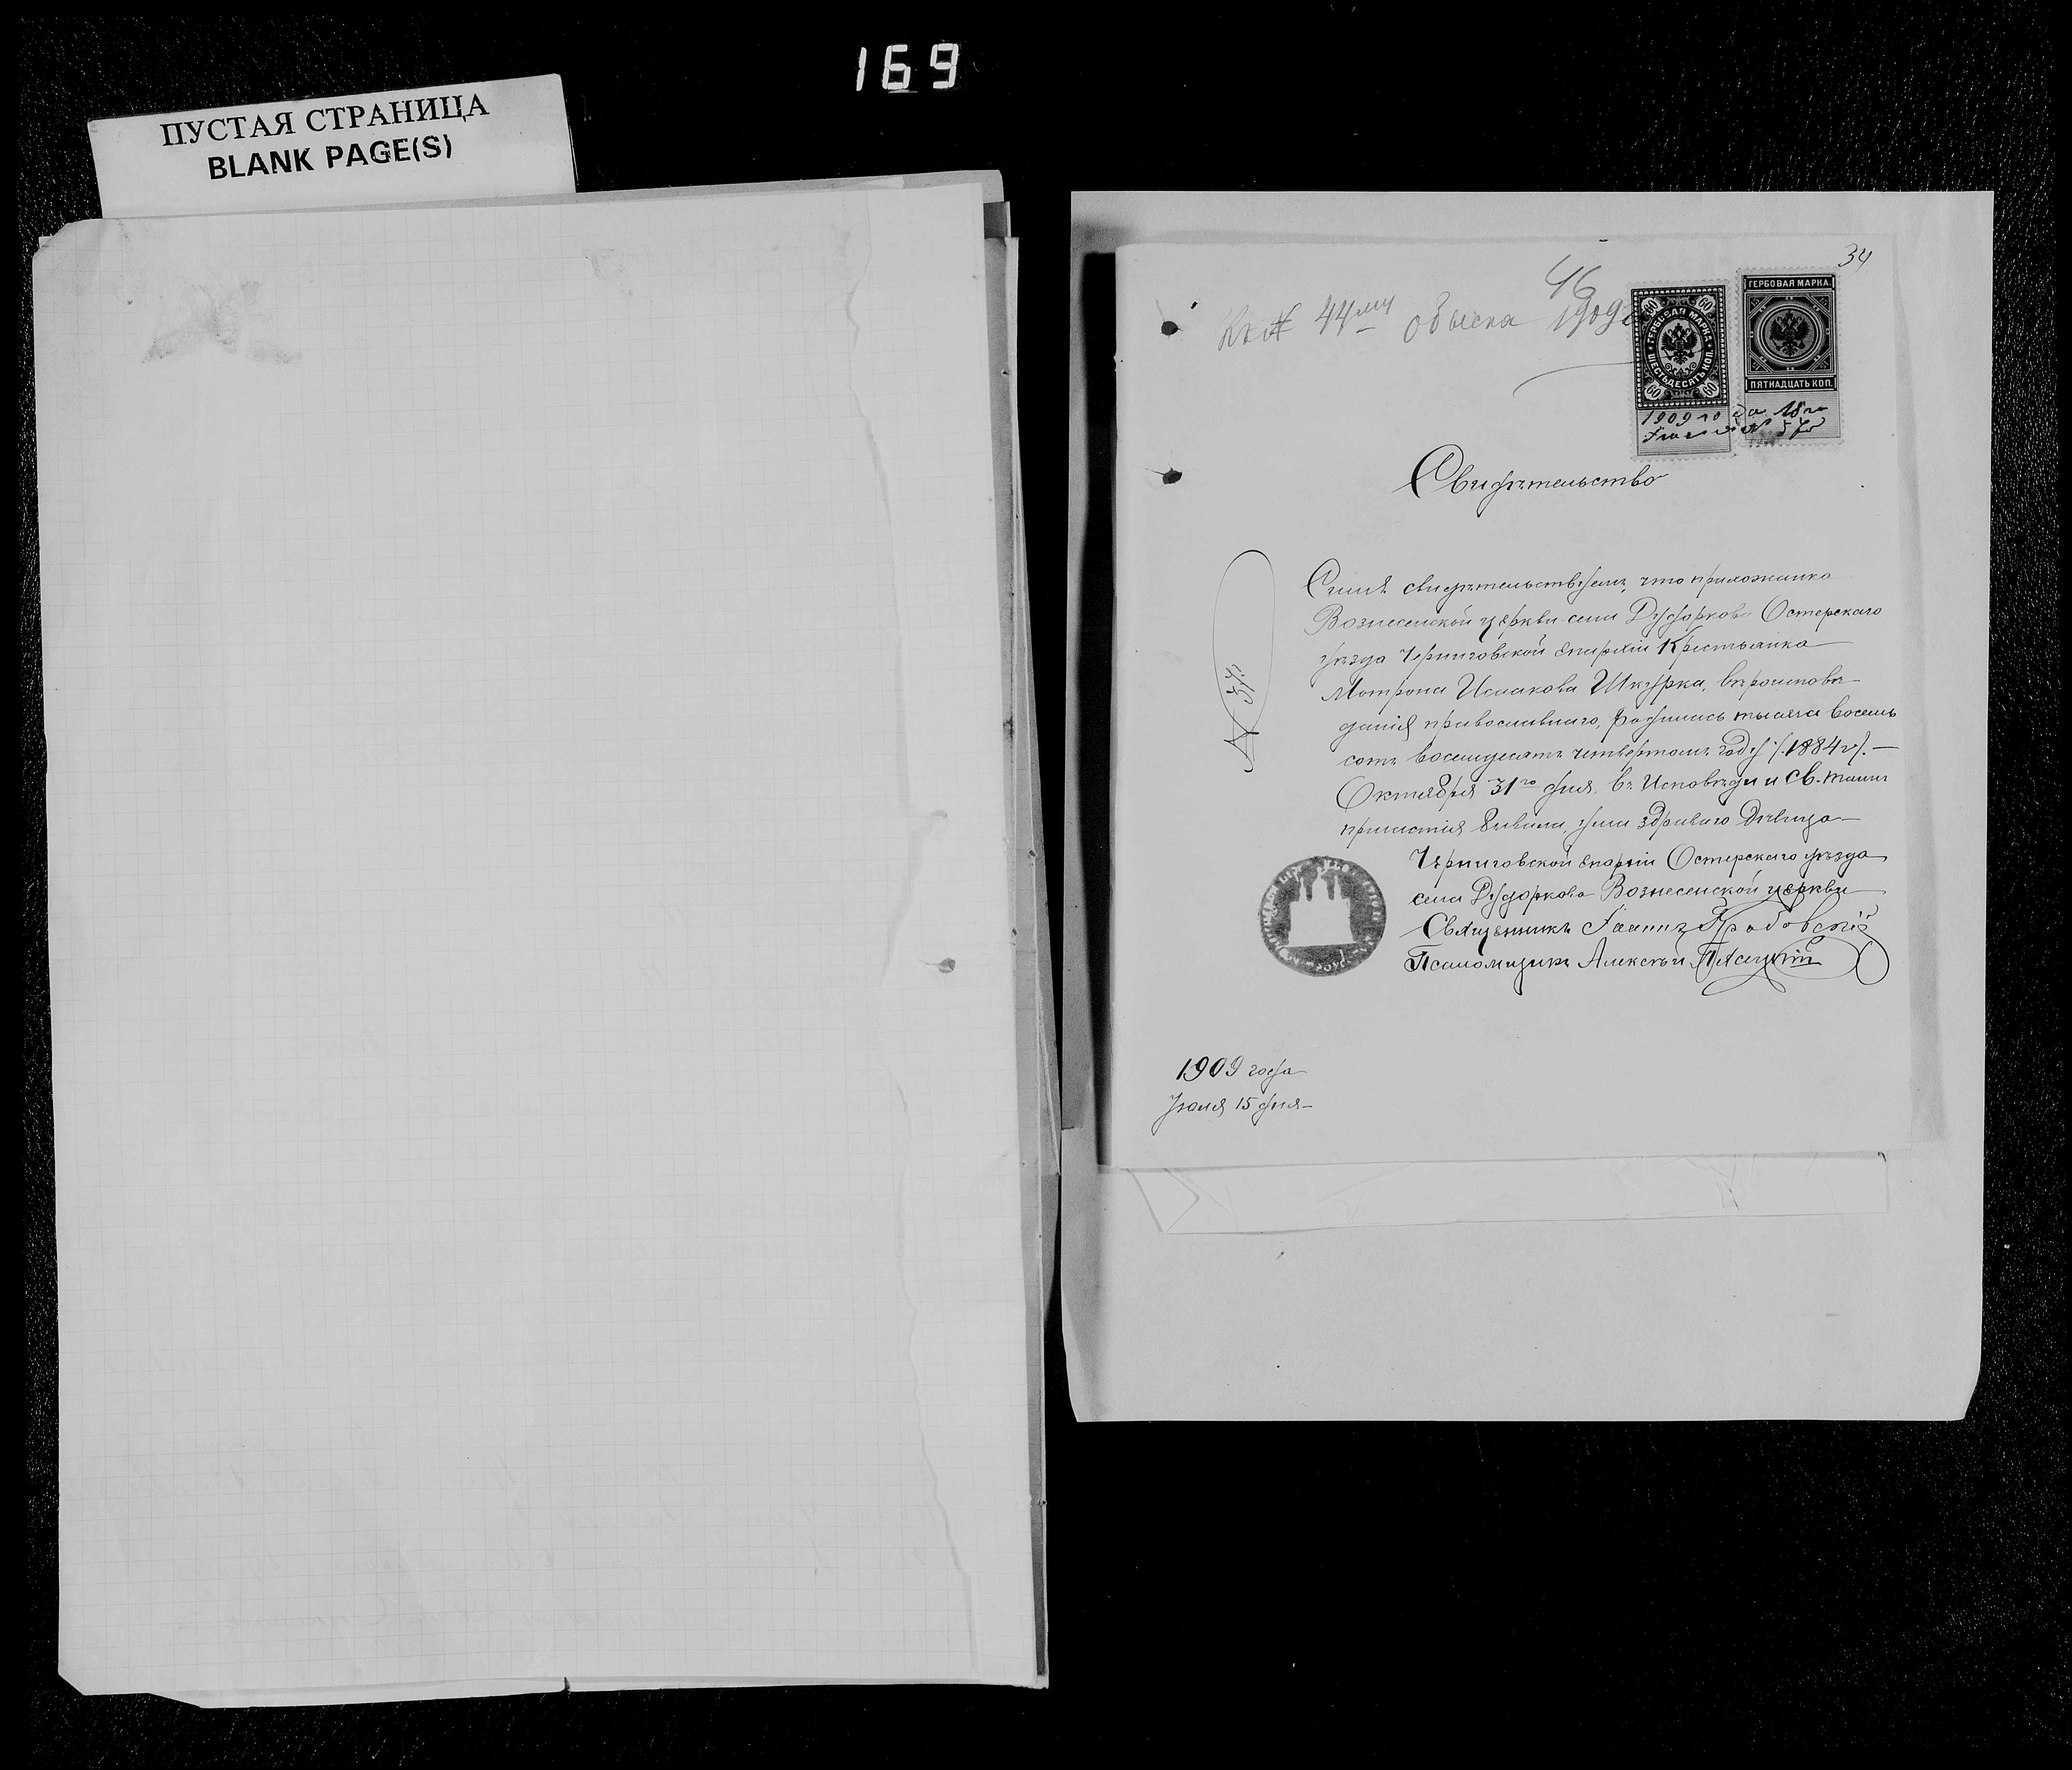 169
ПУСТАЯ СТРАНИЦА
BLANK PAGE(S)
34
46
Къ № 44му обыска 1909 г
60 60
ГЕРБОВАЯ МАРКА
ШЕСТЬДЕСЯТЪ КОП.
60 60
ГЕРБОВАЯ МАРКА.
ПЯТНАДЦАТЬ КОП.
1909 года 18го
Свидѣтельство
№ 37.
Симъ свидѣтельствуемъ, что прихожанка
Вознесенской церкви села Дударкова Остерскаго
уѣзда Черниговской епархіи Крестьянка
Мотрона Исаакова Шкурка, вѣроисповѣ-
данія православнаго, родилась тысяча восемь
сотъ восемдесятъ четвертомъ году /1884 г/. —
Октября 31го дня, въ Исповѣди и Св. таинъ
причастія бывала, ума здраваго Дѣвица —
Черниговской епархіи Остерскаго уѣзда
села Дударкова Вознесенской церкви
Священникъ Іоаннъ
Псаломщикъ Алексѣй
1909 года
Іюля 15 дня —